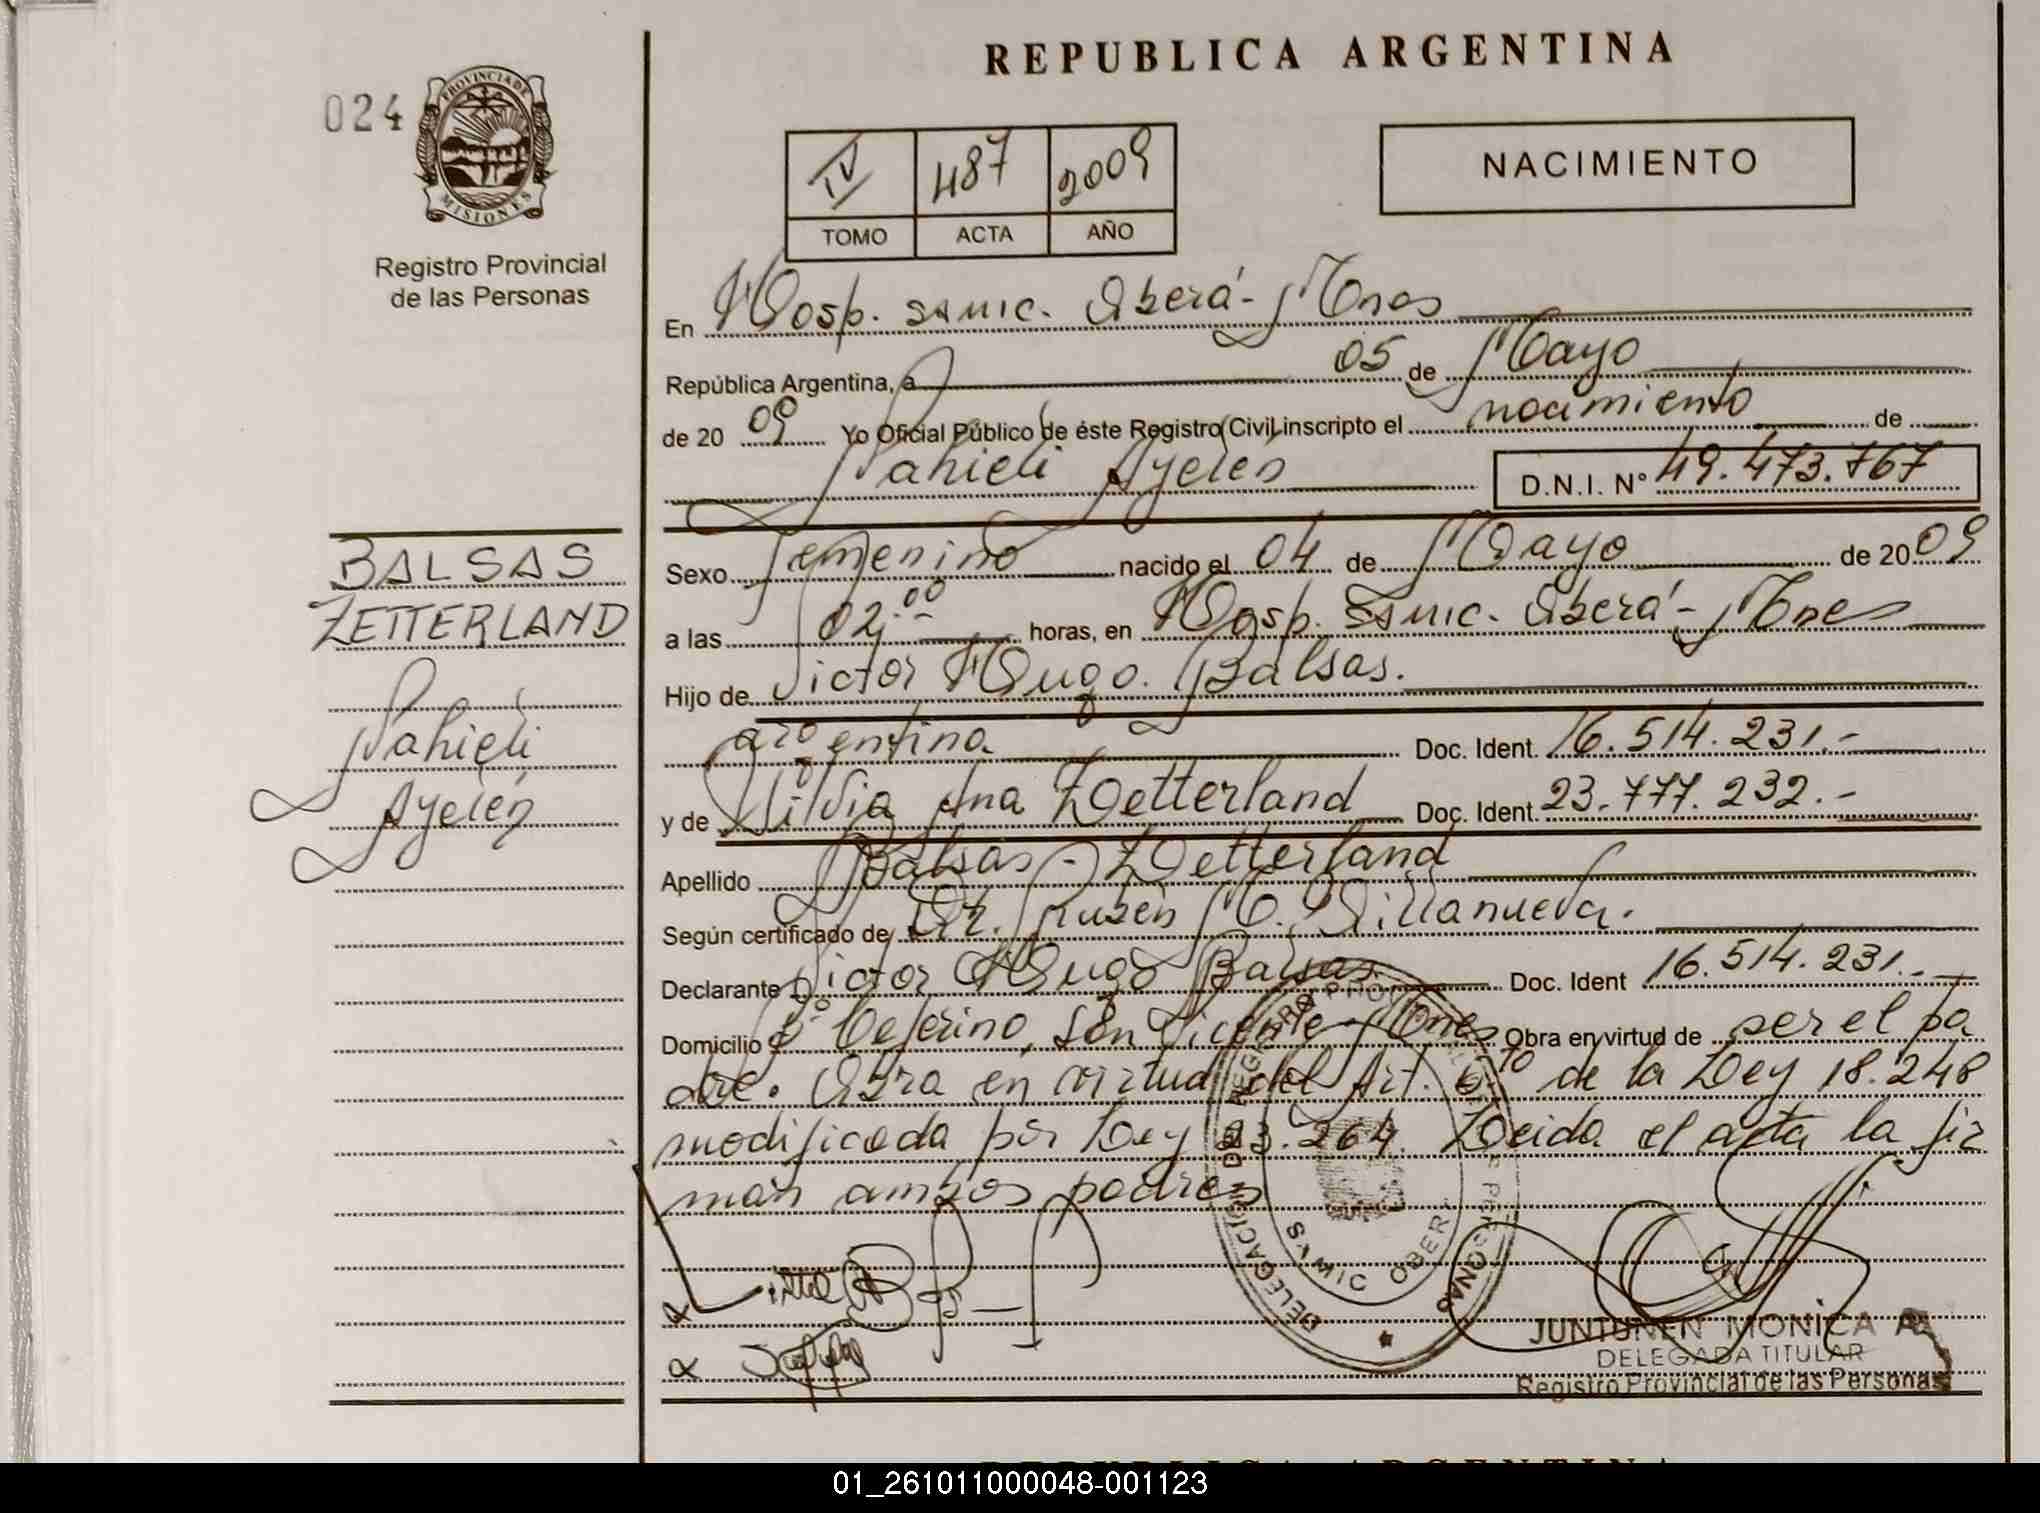 REPUBLICA ARGENTINA
024
PROVINCIA DE
MISIONES
Registro Provincial
de las Personas
IV 487 2009
TOMO ACTA AÑO
NACIMIENTO
En Hosp. Samic. Oberá - Mnes
República Argentina, a 05 de Mayo
de 2009 Yo Oficial Público de éste Registro Civil inscripto el nacimiento de
Nahieli Ayelén D.N.I. Nº 49.473.767
BALSAS
ZETTERLAND
Nahieli
Ayelén
Sexo Femenino nacido el 04 de Mayo de 2009
a las 02,00 horas, en Hosp. Samic. Oberá - Mnes
Hijo de Victor Hugo Balsas.
argentina Doc. Ident. 16.514.231.-
y de Silvia Ana Zetterland Doc. Ident. 23.777.232.-
Apellido Balsas - Zetterland
Según certificado de Dr. Rubén M. Villanueva.
Declarante Victor Hugo Balsas Doc. Ident 16.514.231.-
Domicilio Bº Ceferino, San Vicente - Mnes Obra en virtud de ser el pa
dre. Obra en virtud del Art. de la Ley 18.248
modificada por Ley 23.264. Leida el acta la fir
man ambos padres
DELEGACIÓN REGISTRO PROVINCIAL DE LAS PERSONAS
SAMIC OBERÁ
JUNTUNEN MONICA
DELEGADA TITULAR
Registro Provincial de las Personas
01_261011000048-001123